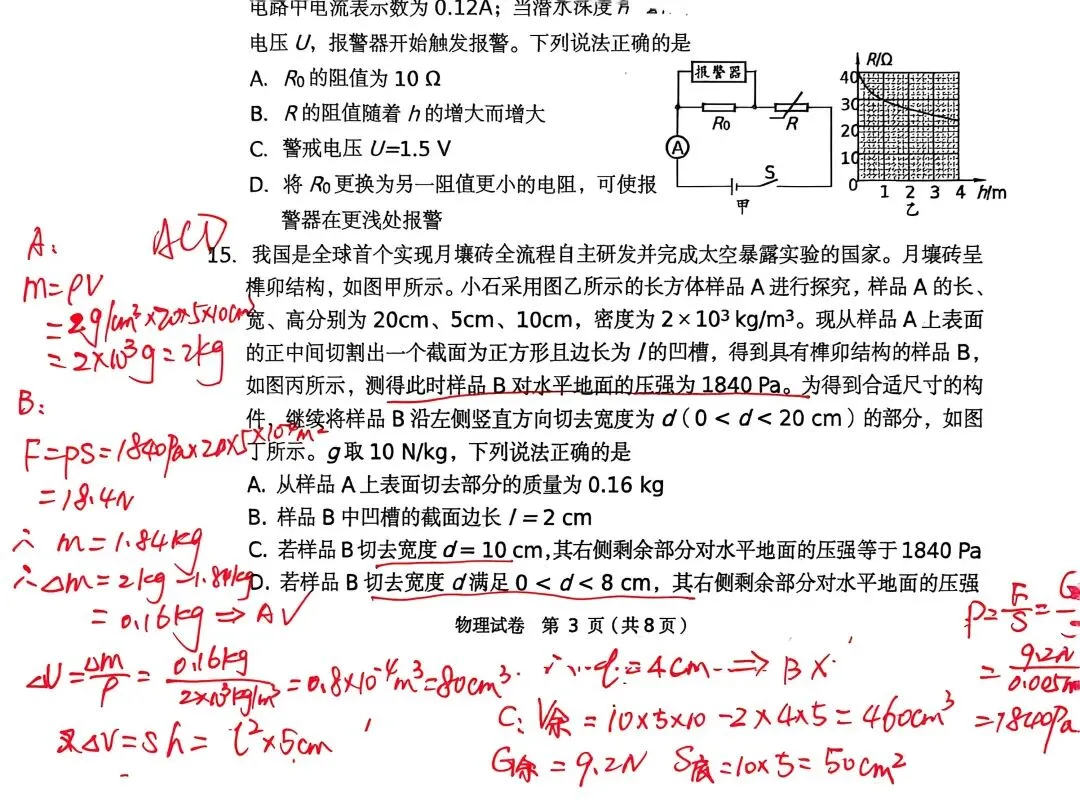 电路中电流表示数为 0.12A；当潜水深度 h
电压 U，报警器开始触发报警。下列说法正确的是
A. R₀的阻值为 10 Ω
B. R 的阻值随着 h 的增大而增大
C. 警戒电压 U=1.5 V
D. 将 R₀更换为另一阻值更小的电阻，可使报
警器在更浅处报警
报警器
R₀
R
A
S
甲
R/Ω
40
30
20
10
0
1 2 3 4 h/m
乙
ACD
15. 我国是全球首个实现月壤砖全流程自主研发并完成太空暴露实验的国家。月壤砖呈
榫卯结构，如图甲所示。小石采用图乙所示的长方体样品 A 进行探究，样品 A 的长、
宽、高分别为 20cm、5cm、10cm，密度为 2×10³ kg/m³。现从样品 A 上表面
的正中间切割出一个截面为正方形且边长为 l 的凹槽，得到具有榫卯结构的样品 B，
如图丙所示，测得此时样品 B 对水平地面的压强为 1840 Pa。为得到合适尺寸的构
件，继续将样品 B 沿左侧竖直方向切去宽度为 d（0 < d < 20 cm）的部分，如图
丁所示。g 取 10 N/kg，下列说法正确的是
A. 从样品 A 上表面切去部分的质量为 0.16 kg
B. 样品 B 中凹槽的截面边长 l = 2 cm
C. 若样品 B 切去宽度 d = 10 cm,其右侧剩余部分对水平地面的压强等于 1840 Pa
D. 若样品 B 切去宽度 d 满足 0 < d < 8 cm，其右侧剩余部分对水平地面的压强
物理试卷 第 3 页（共 8 页）
A:
m=ρV
=2g/cm³×20×5×10cm³
=2×10³g=2kg
B:
F=pS=1840Pa×20×5×10⁻⁴m²
=18.4N
∴ m=1.84kg
∴Δm=2kg-1.84kg
=0.16kg⇒A√
ΔV=Δm/ρ=0.16kg/2×10³kg/m³=0.8×10⁻⁴m³=80cm³
又ΔV=Sh=l²×5cm
∴ l=4cm⇒B×
C: V余=10×5×10-2×4×5=460cm³
G余=9.2N S底=10×5=50cm²
P=F/S=G
=9.2N/0.005m
=1840Pa